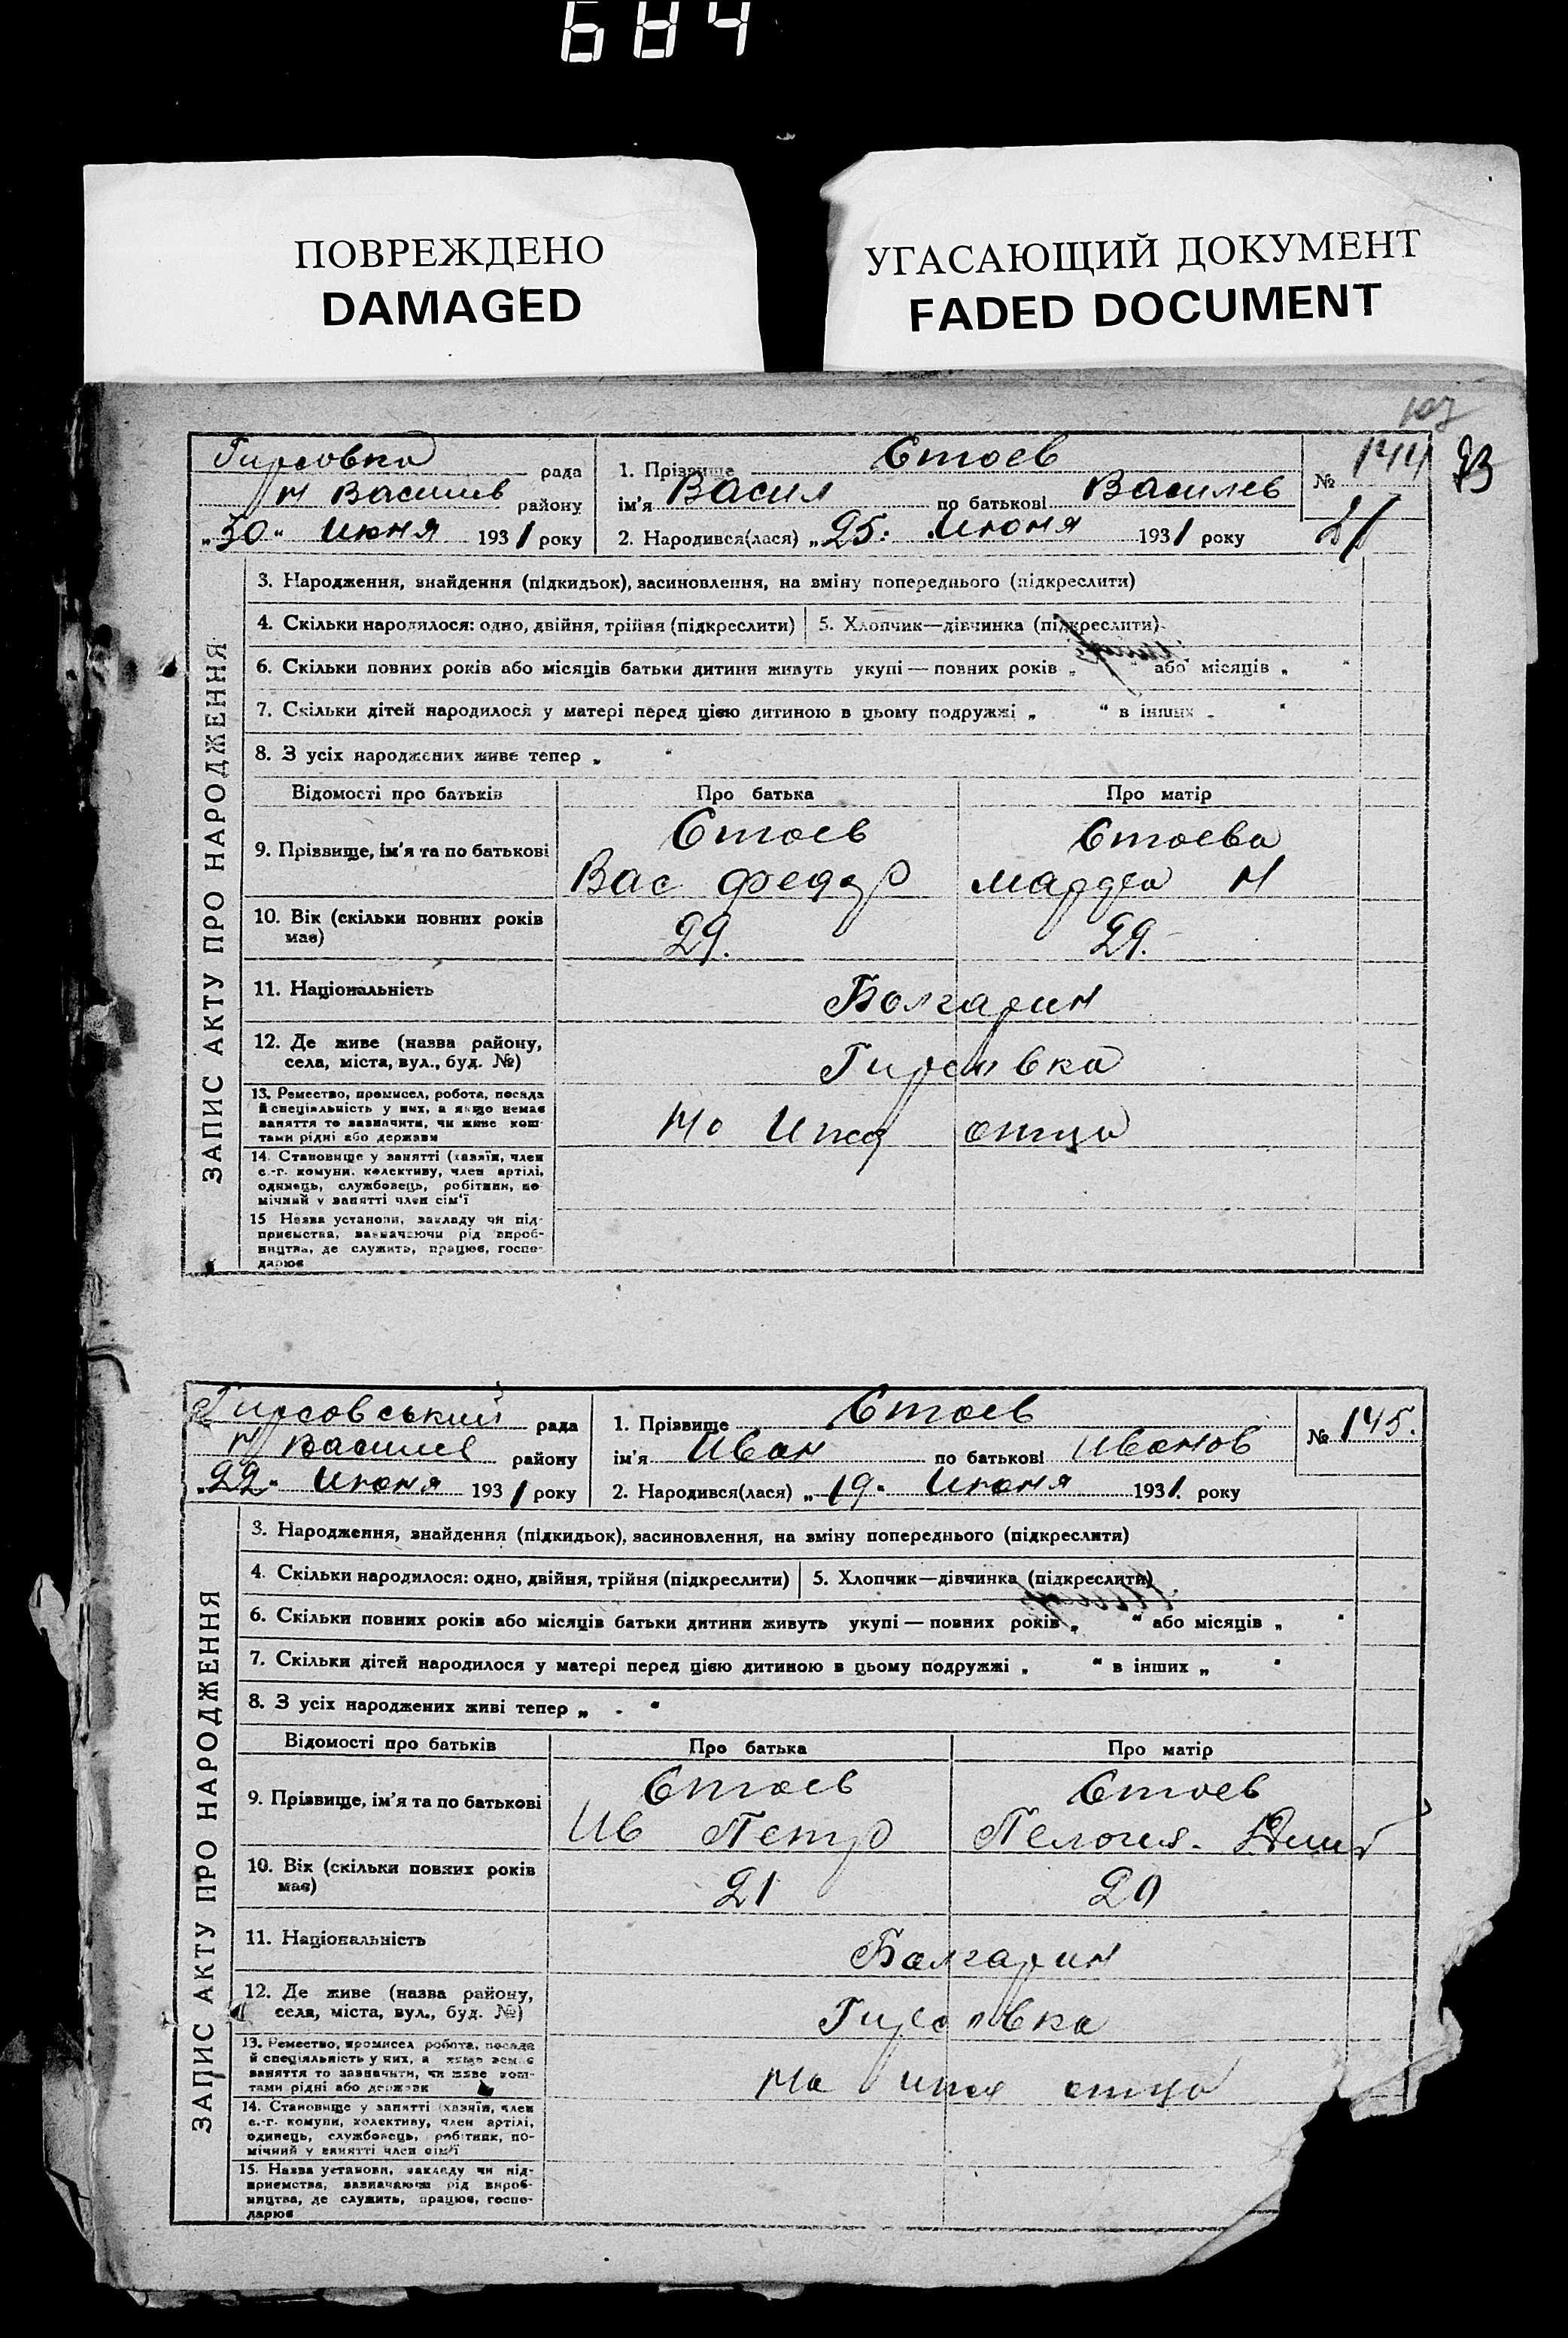 684
ПОВРЕЖДЕНО
DAMAGED
УГАСАЮЩИЙ ДОКУМЕНТ
FADED DOCUMENT
93
ЗАПИС АКТУ ПРО НАРОДЖЕННЯ
Гирсовка рада
Н Васили в району
„30“ Июня 1931 року
1. Прізвище Стоев
ім'я Васил по батькові Василев
2. Народився(лася) „25“ Июня 1931 року
№ 144
3. Народження, знайдення (підкидьок), засиновлення, на зміну попереднього (підкреслити)
4. Скільки народилося: одно, двійня, трійня (підкреслити) 5. Хлопчик—дівчинка (підкреслити)
6. Скільки повних років або місяців батьки дитини живуть укупі — повних років „ або місяців „ “
7. Скільки дітей народилося у матері перед цією дитиною в цьому подружжі „ “ в інших „ “
8. З усіх народжених живе тепер „ “
Відомості про батьків Про батька Про матір
9. Прізвище, ім'я та по батькові Стоев Стоева
Вас Федор Н
10. Вік (скільки повних років має) 29. 29.
11. Національність Болгарин
12. Де живе (назва району, села, міста, вул., буд. №) Гирсовка
13. Ремество, промисел, робота, посада й спеціяльність у них, а якщо немає заняття то зазначити, чи живе коштами рідні або держави
На Ижд отца
14. Становище у занятті (хазяїн, член с.-г. комуни, колективу, член артілі, одинець, службовець, робітник, помічний у занятті член сім'ї
15 Назва установи, закладу чи підприємства, зазначаючи рід виробництва, де служить, працює, господарює
ЗАПИС АКТУ ПРО НАРОДЖЕННЯ
Гирсовський рада
Н Василив району
„22“ Июня 1931 року
1. Прізвище Стоев
ім'я Иван по батькові Иванов
2. Народився(лася) „19“ Июня 1931. року
№ 145.
3. Народження, знайдення (підкидьок), засиновлення, на зміну попереднього (підкреслити)
4. Скільки народилося: одно, двійня, трійня (підкреслити) 5. Хлопчик—дівчинка (підкреслити)
6. Скільки повних років або місяців батьки дитини живуть укупі — повних років „ “ або місяців „ “
7. Скільки дітей народилося у матері перед цією дитиною в цьому подружжі „ “ в інших „ “
8. З усіх народжених живі тепер „ “
Відомості про батьків Про батька Про матір
9. Прізвище, ім'я та по батькові Стоев Стоев
Ив Петр Пелагия.
10. Вік (скільки повних років має) 21 20
11. Національність Болгарин
12. Де живе (назва району, села, міста, вул., буд. №) Гирсовка
13. Ремество, промисел робота, посада й спеціяльність у них, а якщо немає заняття то зазначити, чи живе коштами рідні або держави
На ижд отца
14. Становище у занятті (хазяїн, член с.-г. комуни, колективу, член артілі, одинець, службовець, робітник, помічний у занятті член сім'ї
15. Назва установи, закладу чи підприємства, зазначаючи рід виробництва, де служить, працює, господарює